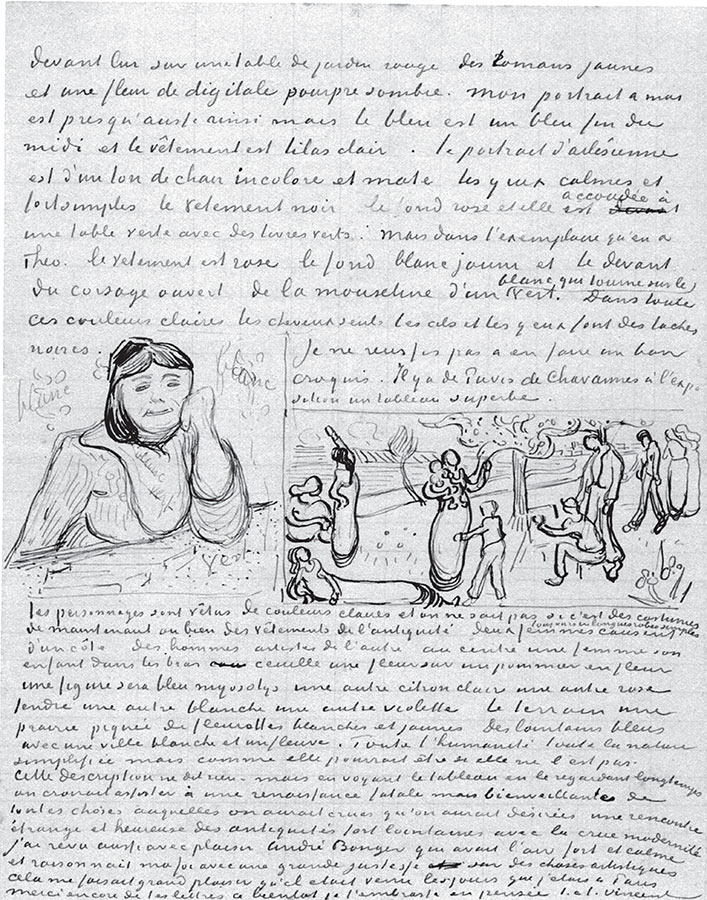 devant lui sur une table de jardin rouge des romans jaunes
et une fleur de digitale pourpre sombre. mon portrait a moi
est presqu'aussi ainsi mais le bleu est un bleu fin du
midi et le vêtement est lilas clair. le portrait d'arlésienne
est d'un ton de chair incolore et mate les yeux calmes et
fort simples le vetement noir le fond rose et elle est accoudée à
une table verte avec des livres verts. mais dans l'exemplaire qu'en a
Theo. le vetement est rose le fond blanc jaune et le devant
du corsage ouvert de la mousseline d'un blanc qui tourne sur le vert. Dans toute
ces couleurs claires les cheveux seuls les cils et les yeux font des taches
noires.
blanc
blanc
blanc
vert
Je ne reussis pas a en faire un bon
croquis. Il y a de Puvis de Chavannes à l'expo
sition un tableau superbe.
les personnages sont vêtus de couleurs claires et on ne sait pas si c'est des costumes
de maintenant ou bien des vêtements de l'antiquité deux femmes causent
d'un côte des hommes artistes de l'autre au centre une femme son
enfant dans les bras cueille une fleur sur un pommier en fleur
une figure sera bleu myosotys une autre citron clair une autre rose
tendre une autre blanche une autre violette le terrain une
prairie piquée de fleurettes blanches et jaunes Des lointains bleus
avec une ville blanche et un fleuve. Toute l'humanité toute la nature
simplifiée mais comme elle pourrait être si elle ne l'est pas.
Cette description ne dit rien mais en voyant le tableau en le regardant longtemps
on croirait assister à une renaissance fatale mais bienveillante de
toutes choses auquelles on aurait crues qu'on aurait désirées une rencontre
étrange et heureuse des antiquités fort lointaines avec la crue modernité
j'ai revu aussi avec plaisir André Bonger qui avait l'air fort et calme
et raisonnait ma foi avec une grande justesse sur des choses artistiques
cela me faisait grand plaisir qu'il etait venu les jours que j'étais à Paris
merci encore de tes lettres a bientot je t'embrasse en pensée t. à t. Vincent